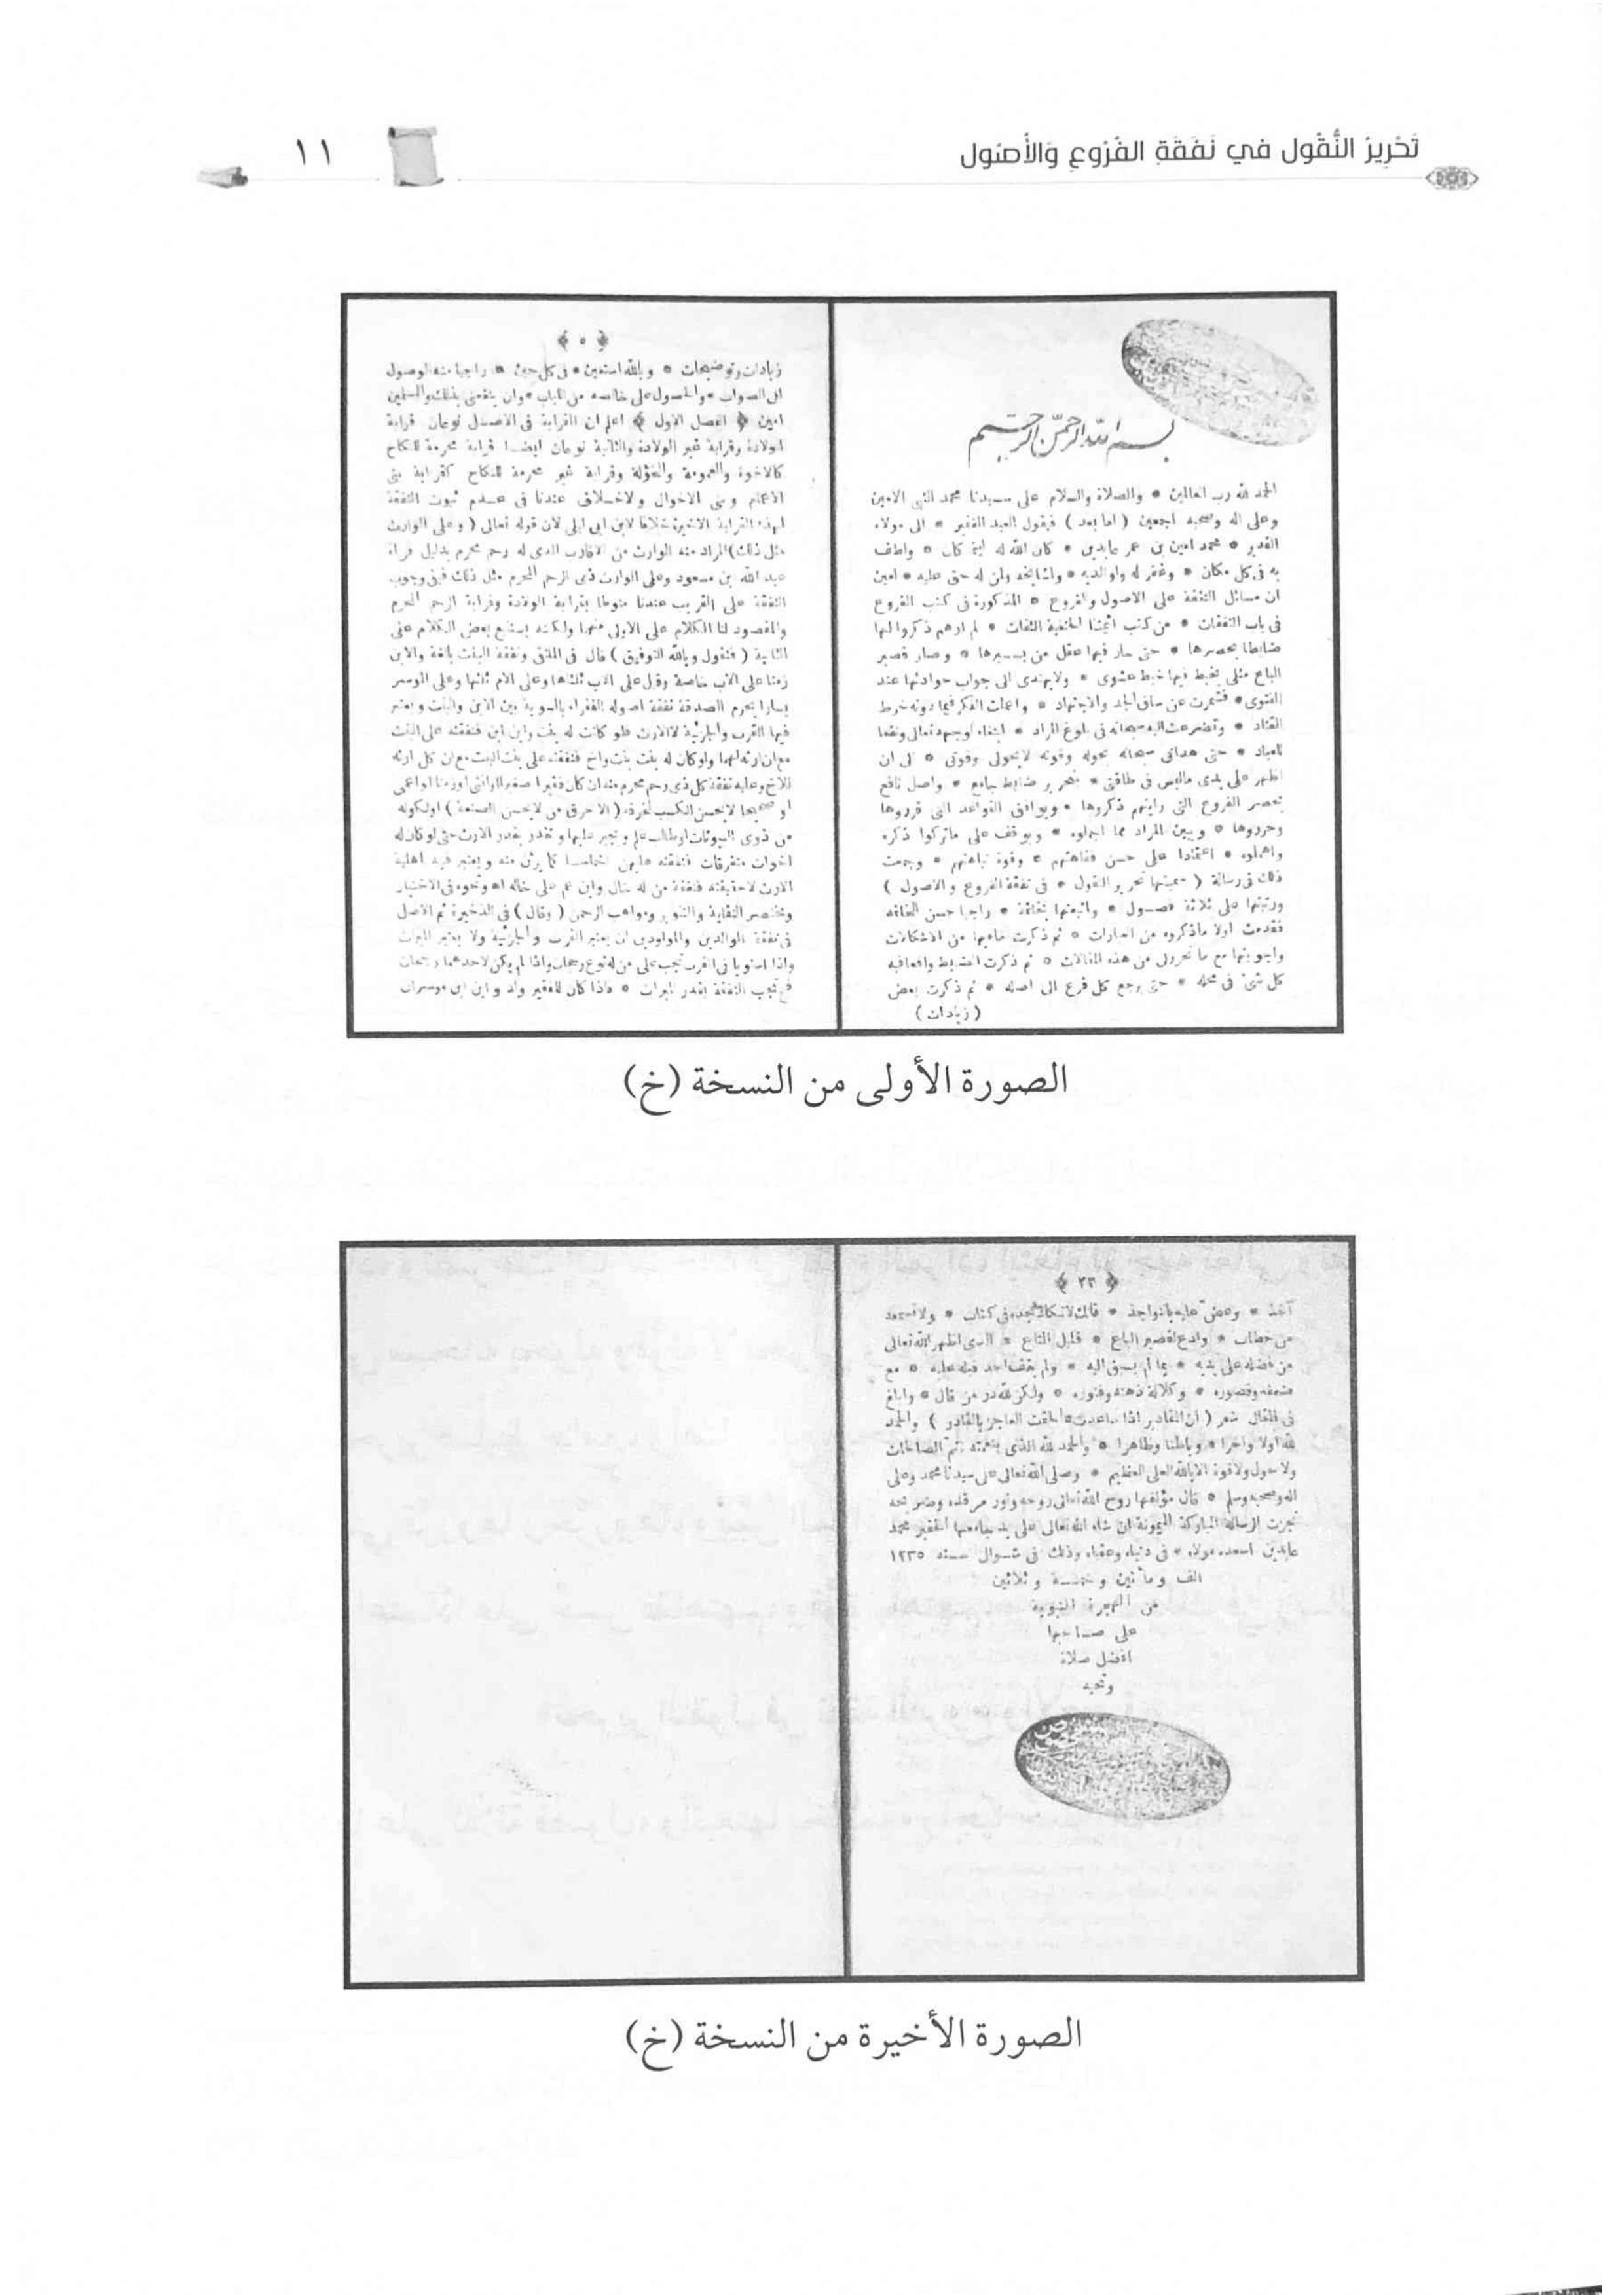 تَحْرِيرُ النُّقُول في نَفَقَةِ الفُرُوعِ وَالأُصُول
١١
بسم الله الرحمن الرحيم
الحمد لله رب العالمين * والصلاة والسلام على سيدنا محمد النبى الامين
وعلى اله وصحبه اجمعين ( اما بعد ) فيقول العبد الفقير * الى مولاه
القدير * محمد امين بن عمر عابدين * كان الله له اينما كان * ولطف
به فى كل مكان * وغفر له ولوالديه * ولمشايخه ولمن له حق عليه * امين
ان مسائل النفقة على الاصول والفروع * المذكورة فى كتب الفروع
فى باب النفقات * من كتب ائمتنا الحنفية الثقات * لم ارهم ذكروا لها
ضابطا يحصرها * حتى حار فيها عقل من يسبرها * وصار قصير
الباع مثلى يخبط فيها خبط عشوى * ولا يهتدى الى جواب حوادثها عند
الفتوى * فشمرت عن ساق الجد والاجتهاد * واعملت الفكر فيما دونه خرط
القتاد * وتضرعت اليه سبحانه فى بلوغ المراد * ابتغاء لوجهه تعالى ونفعا
للعباد * حتى هدانى سبحانه بحوله وقوته لا بحولى وقوتى * الى ان
اظهر على يدى ما ليس فى طاقتى * بتحرير ضابط جامع * واصل نافع
يحصر الفروع التى رايتهم ذكروها * ويوافق القواعد التى قرروها
وحرروها * ويبين المراد مما اجملوه * ويوقف على ماتركوا ذكره
واهملوه * اعتمادا على حسن فقاهتهم * وقوة نباهتهم * وجمعت
ذلك فى رسالة ( سميتها تحرير النقول * فى نفقة الفروع والاصول )
ورتبتها على ثلاثة فصول * واتبعتها بخاتمة * راجيا حسن الخاتمه
فقدمت اولا ماذكروه من العبارات * ثم ذكرت مافيها من الاشكالات
واجوبتها مع ما تحرر لى من هذه المقالات * ثم ذكرت الضابط واقعا فيه
كل شئ فى محله * حتى يرجع كل فرع الى اصله * ثم ذكرت بعض
( زيادات )
﴿ ٥ ﴾
زيادات وتوضيحات * وبالله استعين * فى كل حين * راجيا منه الوصول
الى الصواب * والحصول على خالصه من اللباب * وان ينفعنى بذلك والمسلمين
امين ﴿ الفصل الاول ﴾ اعلم ان القرابة فى الاصل نوعان قرابة
الولادة وقرابة غير الولادة والثانية نوعان ايضا قرابة محرمة للنكاح
كالاخوة والعمومة والخؤلة وقرابة غير محرمة للنكاح كقرابة بنى
الاعمام وبنى الاخوال ولا خلاف عندنا فى عدم ثبوت النفقة
لهذه القرابة الاخيرة خلافا لابن ابى ليلى لان قوله تعالى ( وعلى الوارث
مثل ذلك ) المراد منه الوارث من الاقارب الذى له رحم محرم بدليل قراة
عبد الله بن مسعود وعلى الوارث ذى الرحم المحرم مثل ذلك فبقى وجوب
النفقة على القريب عندنا منوطا بقرابة الولادة وقرابة الرحم المحرم
والمقصود لنا الكلام على الاولى منهما ولكنه يستتبع بعض الكلام على
الثانية ( فنقول وبالله التوفيق ) قال فى الملتقى ونفقة البنت بالغة والابن
زمنا على الاب خاصة وقيل على الاب ثلثاها وعلى الام ثلثها وعلى الموسر
يسارا يحرم الصدقة نفقة اصوله الفقراء بالسوية بين الابن والبنت ويعتبر
فيها القرب والجزئية لا الارث فلو كانت له بنت وابن ابن فنفقته على البنت
مع ان ارثه لهما ولو كان له بنت بنت واخ فنفقته على بنت البنت مع ان كل ارثه
للاخ وعليه نفقة كل ذى رحم محرم منه ان كان فقيرا صغيرا او انثى او زمنا او اعمى
او صحيحا لا يحسن الكسب لخرقه ( الاخرق من لا يحسن الصنعة ) اولكونه
من ذوى البيوتات او طالب علم ويجبر عليها وتقدر بقدر الارث حتى لو كان له
اخوات متفرقات فنفقته عليهن اخماسا كما يرثن منه ويعتبر فيه اهلية
الارث لا حقيقته فنفقة من له خال وابن عم على خاله اه ونحوه فى الاختيار
ومختصر النقاية والتنوير ومواهب الرحمن ( وقال ) فى الذخيرة ثم الاصل
فى نفقة الوالدين والمولودين ان يعتبر القرب والجزئية ولا يعتبر الميراث
واذا استويا فى القرب تجب على من له نوع رجحان واذا لم يكن لاحدهما رجحان
فح تجب النفقة بقدر الميراث * فاذا كان للفقير ولد وابن ابن موسران
الصورة الأولى من النسخة (خ)
﴿ ٢٣ ﴾
آخذ * وعض عليه بالنواجذ * فانك لا تكاد تجده فى كتاب * ولا تسمعه
من خطاب * وادع لقصير الباع * قليل المتاع * الذى اظهر الله تعالى
من فضله على يديه * بما لم يسبق اليه * ولم يقف احد قبله عليه * مع
ضعفه وقصوره * وكلالة ذهنه وفتوره * ولكن لله در من قال * وابلغ
فى المقال شعر ( ان المقادير اذا ساعدت * الحقت العاجز بالقادر ) والحمد
لله اولا واخرا * وباطنا وظاهرا * والحمد لله الذى بنعمته تتم الصالحات
ولا حول ولا قوة الا بالله العلى العظيم * وصلى الله تعالى على سيدنا محمد وعلى
اله وصحبه وسلم * قال مؤلفها روح الله تعالى روحه ونور مرقده وضريحه
نجزت الرسالة المباركة الميمونة ان شاء الله تعالى على يد جامعها الحقير محمد
عابدين اسعده مولاه * فى دنياه وعقباه وذلك فى شوال سنه ١٢٣٥
الف ومأتين وخمسة وثلاثين
من الهجرة النبوية
على صاحبها
افضل صلاة
وتحيه
الصورة الأخيرة من النسخة (خ)